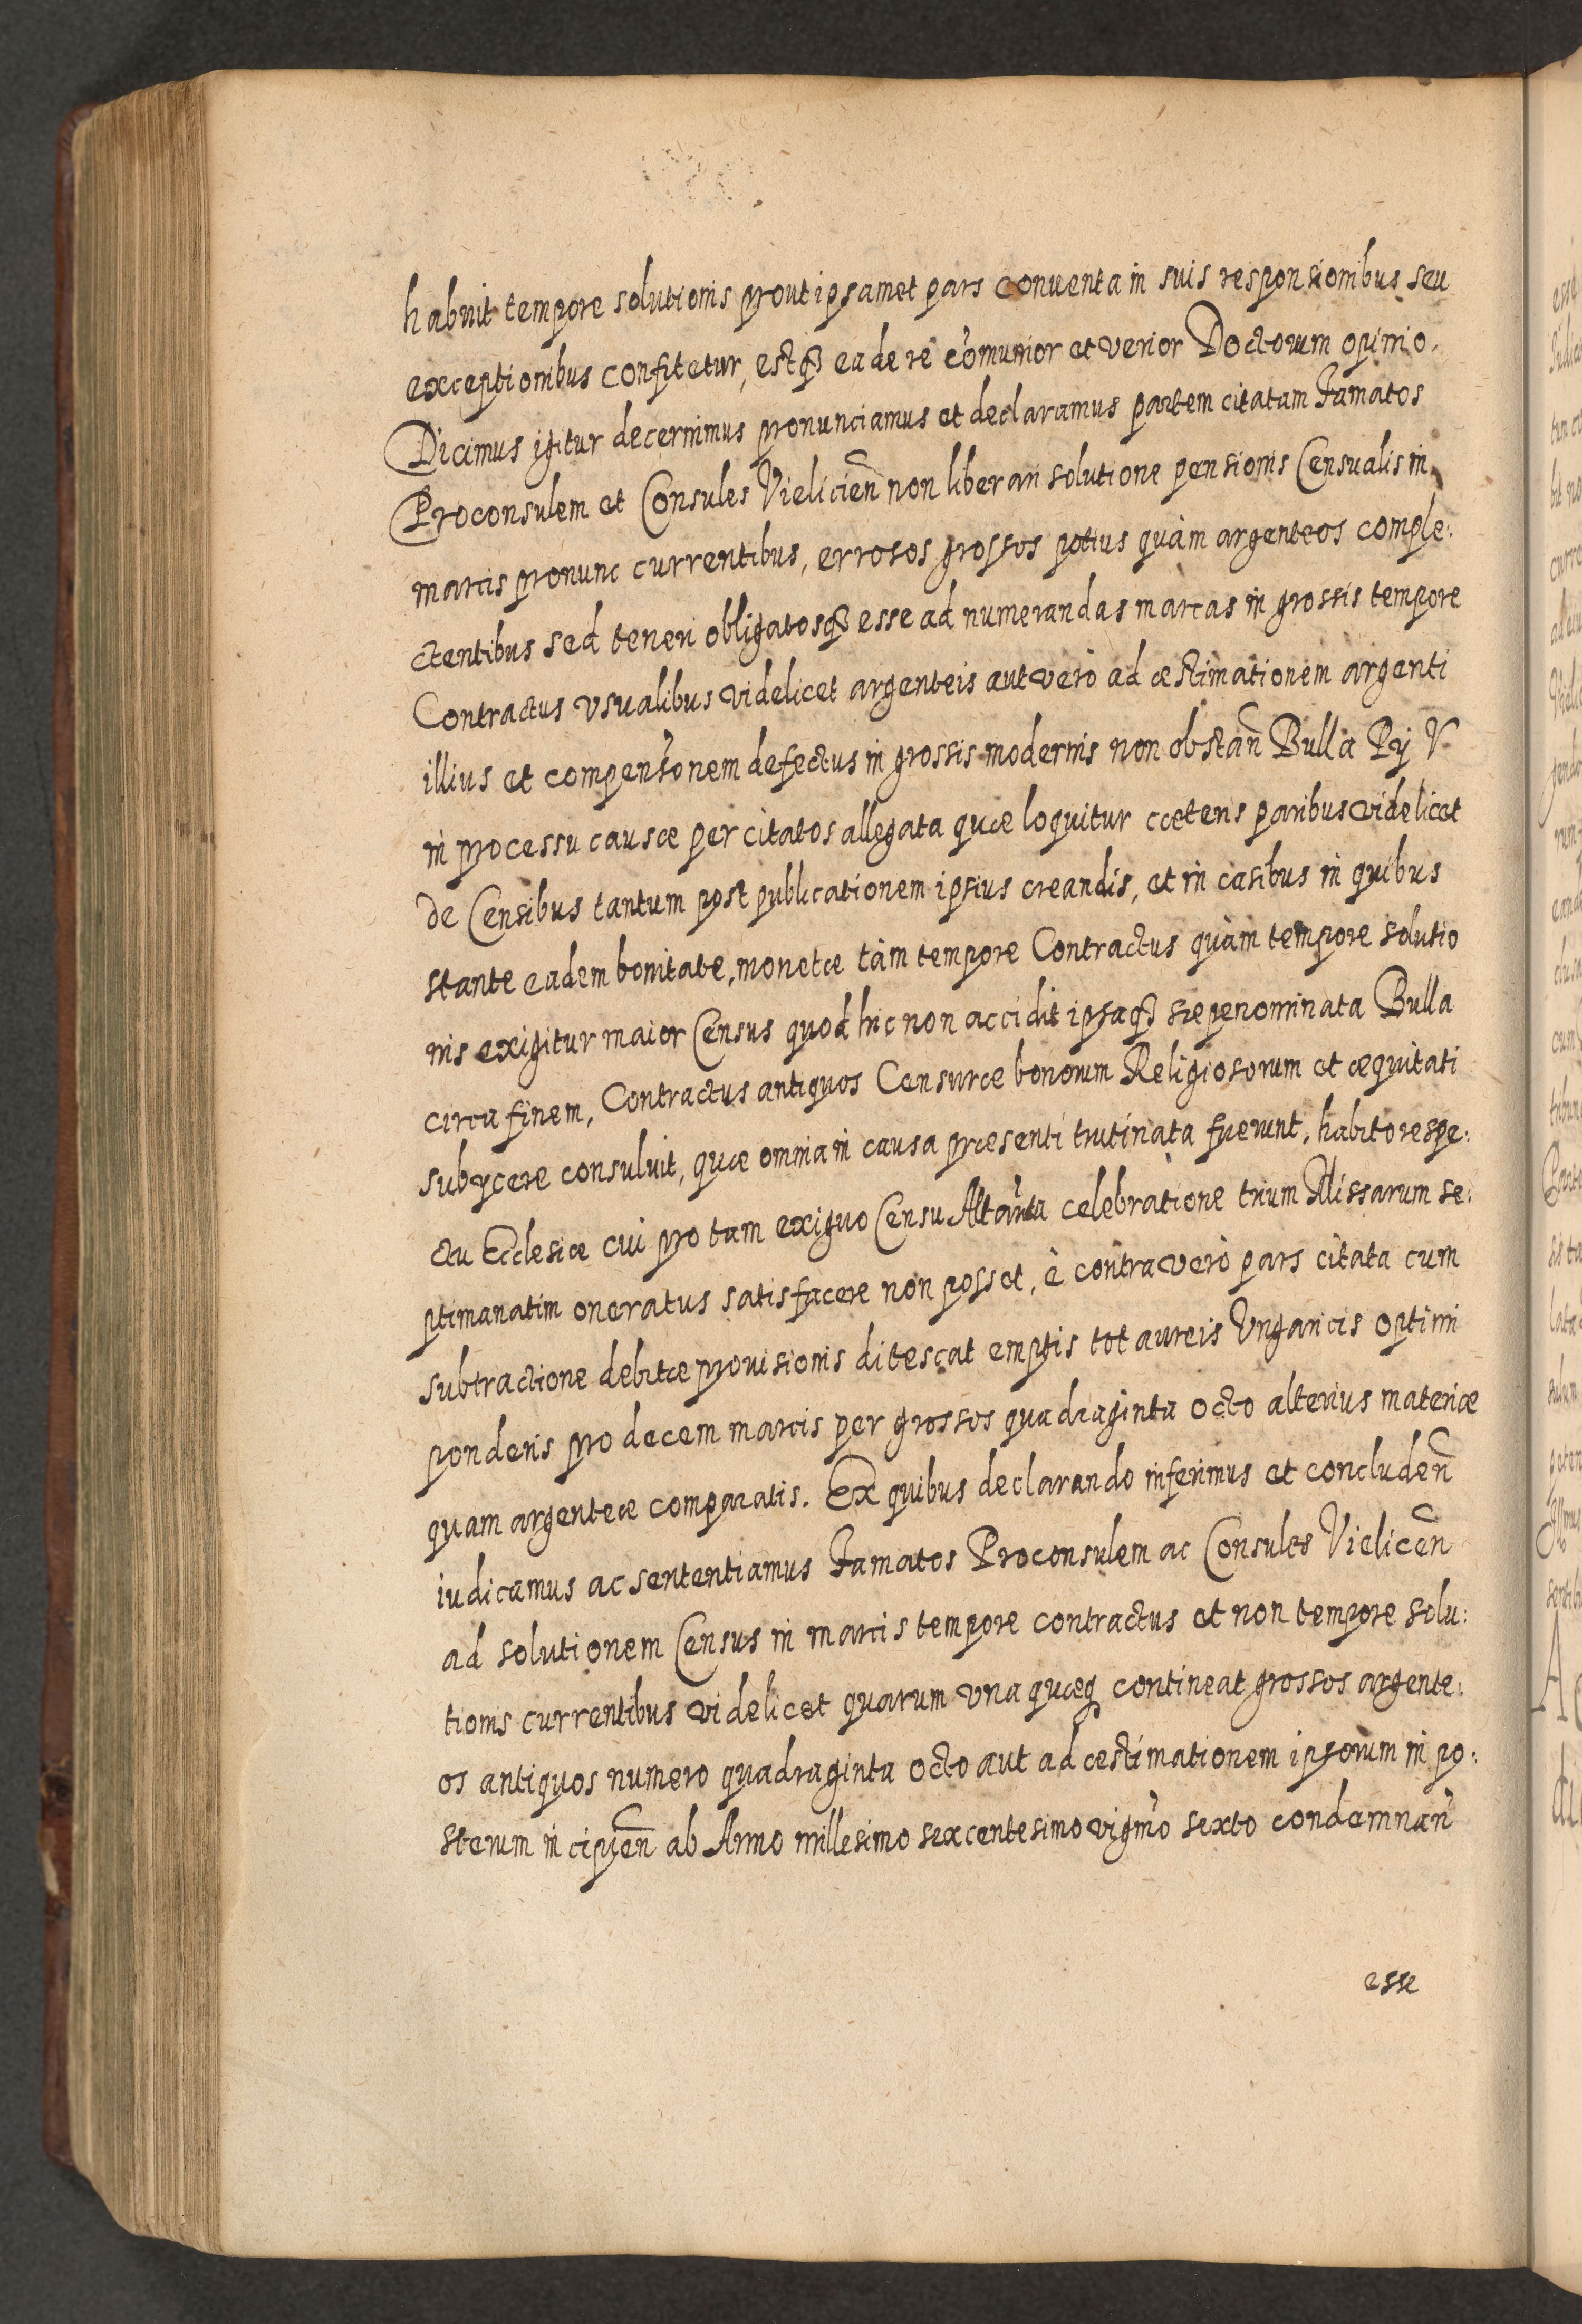 habuit tempore solutionis prout ipsamet pars conuenta in suis responsionibus seu
exceptionibus confitetur, estq₃ ea de re cõmunior et verior Doctorum opinio.
Dicimus igitur decernimus pronunciamus et declaramus partem citatam Famatos
Proconsulem et Consules Vieliciẽn non liberari solutione pensionis Censualis in
marcis pronunc currentibus, errosos grossos potius quàm argenteos comple:
ctentibus sed teneri obligatosq₃ esse ad numerandas marcas in grossis tempore
Contractus vsualibus videlicet argenteis aut verò ad æstimationem argenti
illius et compens̃onem defectus in grossis modernis non obstañ Bulla Pij V
in processu causæ per citatos allegata quæ loquitur cæteris paribus videlicet
de Censibus tantum post publicationem ipsius creandis, et in casibus in quibus
stante eadem bonitate, monetæ tàm tempore Contractus quàm tempore solutio
nis exigitur maior Census quod hic non accidit ipsaq₃ sæpenominata Bulla
circa finem, Contractus antiquos Censuræ bonorum Religiosorum et æquitati
subijcere consuluit, quæ omnia in causa præsenti trutinata fuerunt, habito respe:
ctu Ecclesiæ cui pro tam exiguo Censu Altar̃ta celebratione trium Missarum se:
ptimanatim oneratus satisfacere non posset, è contra verò pars citata cum
subtractione debitæ prouisionis ditescat emptis tot aureis Vngaricis optimi
ponderis pro decem marcis per grossos quadraginta octo alterius materiæ
quam argenteæ comparatis. Ex quibus declarando inferimus et concludeñ
iudicamus ac sententiamus Famatos Proconsulem ac Consules Vieliceñ
ad solutionem Census in marcis tempore contractus et non tempore solu:
tionis currentibus videlicet quarum vna quæq contineat grossos argente:
os antiquos numero quadraginta octo aut ad æstimationem ipsorum in po:
sterum incipieñ ab Anno millesimo sexcentesimo vigm̃o sexto condemnañ
esse